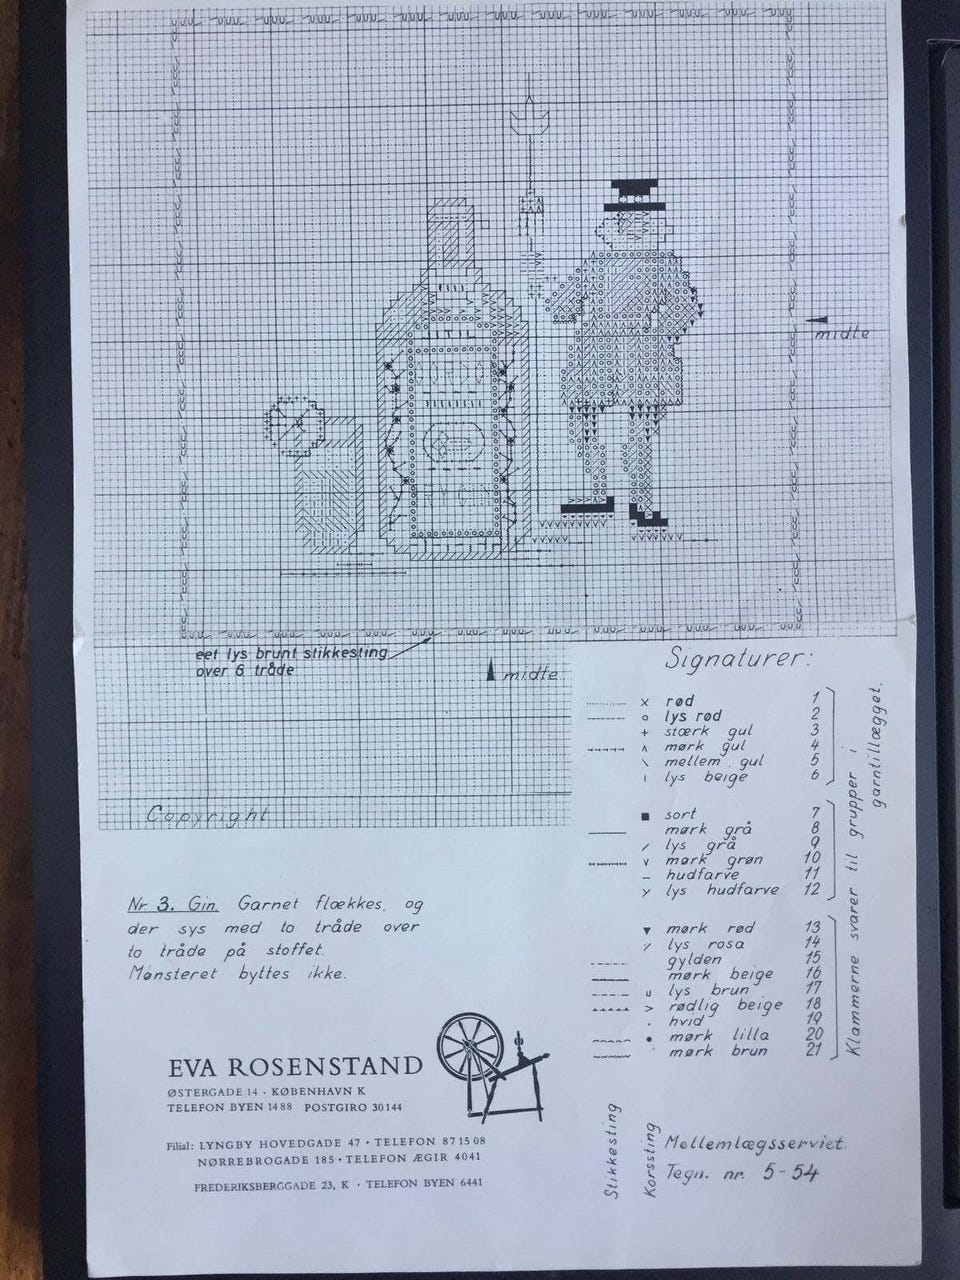 ITIL
GORDO
RY GIN
midte
eet lys brunt stikkesting
over 6 tråde
midte
Copyright
Signaturer:
x rød 1
o lys rød 2
+ stærk gul 3
ʌ mørk gul 4
\ mellem gul 5
ı lys beige 6
■ sort 7
mørk grå 8
/ lys grå 9
v mørk grøn 10
– hudfarve 11
lys hudfarve 12
▼ mørk rød 13
lys rosa 14
gylden 15
mørk beige 16
u lys brun 17
> rødlig beige 18
. hvid 19
• mørk lilla 20
mørk brun 21
Klammerne svarer til grupper i
garntillægget.
Stikkesting
Korssting
Nr 3. Gin. Garnet flækkes, og
der sys med to tråde over
to tråde på stoffet.
Mønsteret byttes ikke.
EVA ROSENSTAND
ØSTERGADE 14 · KØBENHAVN K
TELEFON BYEN 1488 POSTGIRO 30144
Filial: LYNGBY HOVEDGADE 47 · TELEFON 87 15 08
NØRREBROGADE 185 · TELEFON ÆGIR 4041
FREDERIKSBERGGADE 23, K · TELEFON BYEN 6441
Mellemlægsserviet.
Tegn. nr. 5-54